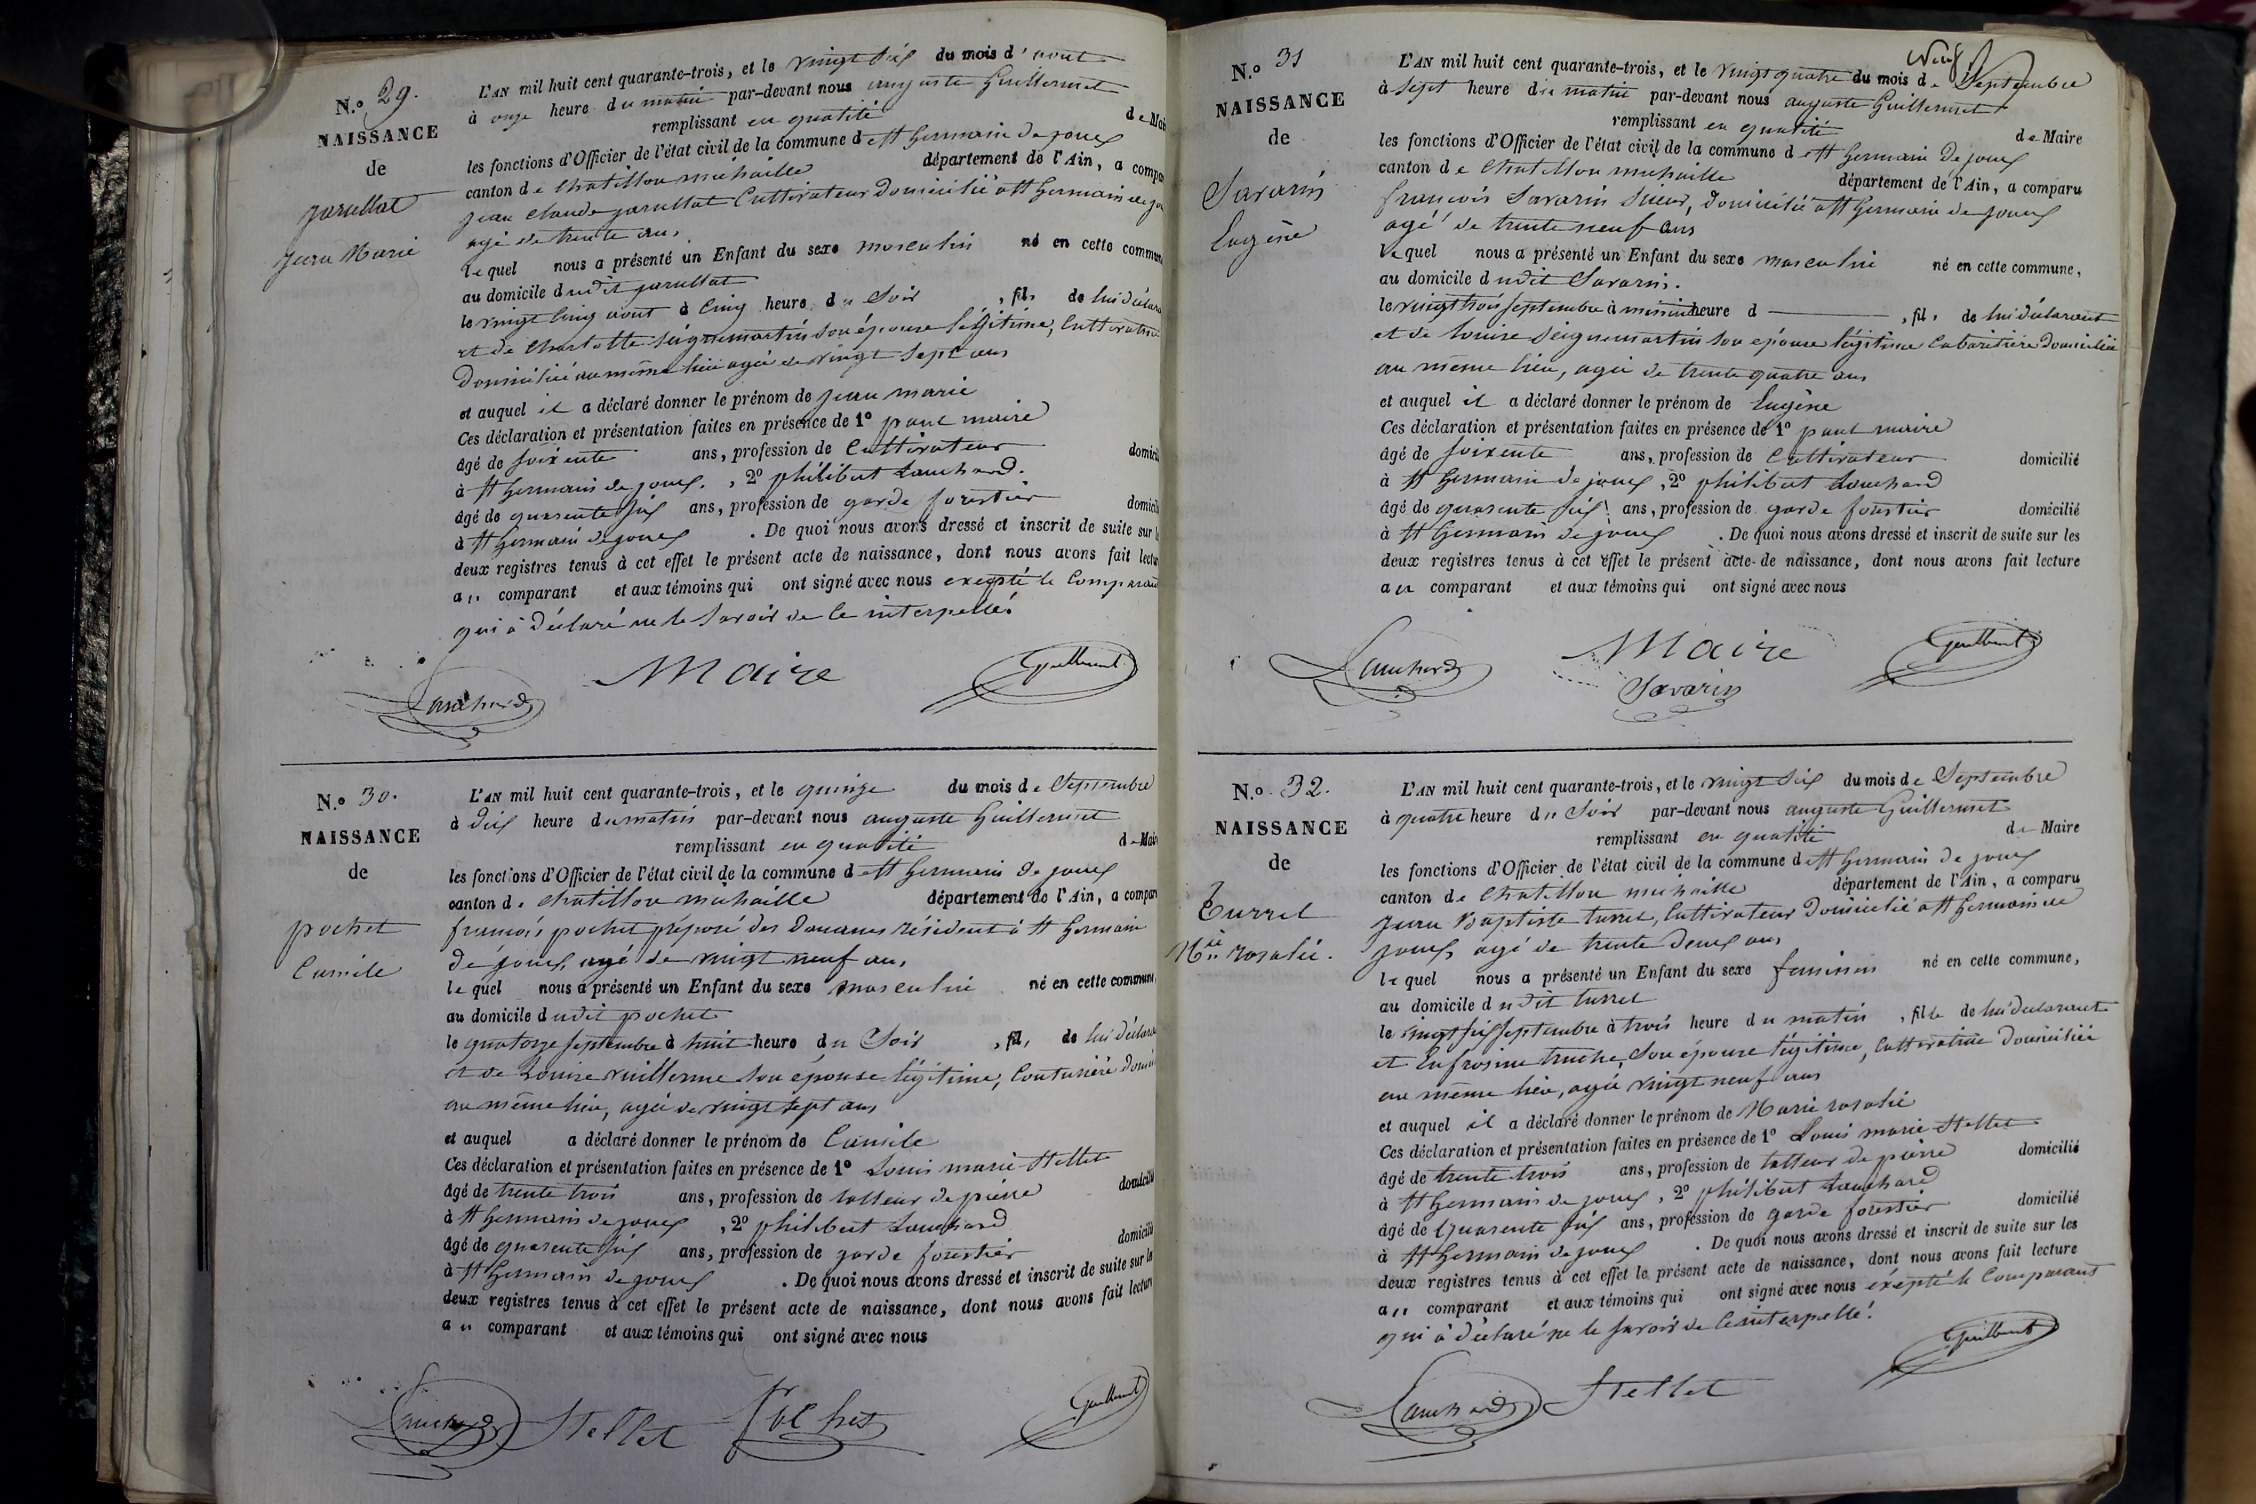 N.o 29.
NAISSANCE
de
jarullat
Jean Marie
L'AN mil huit cent quarante-trois, et le vingt six du mois d'aout
à onze heure du matin par-devant nous auguste Guillermet
remplissant en qualité de Mair
les fonctions d'Officier de l'état civil de la commune de St Germain de joux
canton de Chatillon michaille département de l'Ain, a compar
jean claude jarullat Cultivateur Domicilié a St Germain de jo
agé de trente ans,
lequel nous a présenté un Enfant du sexe masculin né en cette commune
au domicile dudit jarullat
le vingt cinq aout à Cinq heure du Soir , fils de lui déclara
et de Charlotte Seignemartin son épouse légitime, Cultivatrice
Domiciliée au même lieu agée de vingt sept ans
et auquel il a déclaré donner le prénom de jean marie
Ces déclaration et présentation faites en présence de 1o paul maire
âgé de soixente ans, profession de Cultivateur domicili
à St Germain de joux. , 2o philibert Lanchard.
âgé de quarente six ans, profession de garde forestier domicili
à St Germain de joux . De quoi nous avons dressé et inscrit de suite sur l
deux registres tenus à cet effet le présent acte de naissance, dont nous avons fait lectur
au comparant et aux témoins qui ont signé avec nous excepté le Comparant
qui à déclaré ne le savoir de ce interpellé.
Lanchard Maire Guillermet
N.o 30.
NAISSANCE
de
pochet
Camile
L'AN mil huit cent quarante-trois, et le quinze du mois de Septembre
à dix heure du matin par-devant nous auguste Guillermet
remplissant en qualité de Mair
les fonctions d'Officier de l'état civil de la commune de St Germain de joux
canton de Chatillon michaille département de l'Ain, a compar
françois pochet préposé des Douanes résident à St Germain
de joux, agé de vingt neuf ans,
lequel nous a présenté un Enfant du sexe masculin né en cette commune,
au domicile dudit pochet
le quatorze septembre à huit heure du Soir , fils de lui déclara
et de Louise vuillerme son épouse légitime, Couturière domi
au même lieu, agée de vingt sept ans
et auquel a déclaré donner le prénom de Camile
Ces déclaration et présentation faites en présence de 1o Louis marie Stellet
âgé de trente trois ans, profession de tatteur de pierre domicilié
à St Germain de joux , 2o philibert Lanchard
âgé de quarente six ans, profession de garde forestier domicilié
à St Germain de joux . De quoi nous avons dressé et inscrit de suite sur le
deux registres tenus à cet effet le présent acte de naissance, dont nous avons fait lecture
au comparant et aux témoins qui ont signé avec nous
Lanchard Stellet Pochet Guillermet
Neuf
N.o 31
NAISSANCE
de
Savarin
Eugène
L'AN mil huit cent quarante-trois, et le vingt quatre du mois de Septembre
à sept heure du matin par-devant nous auguste Guillermet
remplissant en qualité de Maire
les fonctions d'Officier de l'état civil de la commune de St Germain de joux
canton de Chatillon michaille département de l'Ain, a comparu
françois Savarin Scieur, Domicilié a St Germain de joux
agé de trente neuf ans
lequel nous a présenté un Enfant du sexe masculin né en cette commune,
au domicile dudit Savarin.
le vingt trois septembre à minuit heure d , fils de lui déclarant
et de louise Seignemartin son épouse légitime Cabaretière Domiciliée
au même lieu, agée de trente quatre ans
et auquel il a déclaré donner le prénom de Eugène
Ces déclaration et présentation faites en présence de 1o paul maire
âgé de soixente ans, profession de Cultivateur domicilié
à St Germain de joux , 2o philibert Lanchard
âgé de quarente six ans, profession de garde forestier domicilié
à St Germain de joux . De quoi nous avons dressé et inscrit de suite sur les
deux registres tenus à cet effet le présent acte de naissance, dont nous avons fait lecture
au comparant et aux témoins qui ont signé avec nous
Lanchard Maire Guillermet
Savarin
N.o 32.
NAISSANCE
de
Turrel
Mie rosalie.
L'AN mil huit cent quarante-trois, et le vingt six du mois de Septembre
à quatre heure du Soir par-devant nous auguste Guillermet
remplissant en qualité de Maire
les fonctions d'Officier de l'état civil de la commune de St Germain de joux
canton de Chatillon michaille département de l'Ain, a comparu
Jean Baptiste turrel, Cultivateur Domicilié a St Germain de
joux agé de trente deux ans
lequel nous a présenté un Enfant du sexe feminin né en cette commune,
au domicile dudit turrel
le vingt six septembre à trois heure du matin , fille de lui déclarant
et Eufrosine truche, son épouse légitime, Cultivatrice Domiciliée
au même lieu, agée vingt neuf ans
et auquel il a déclaré donner le prénom de Marie rosalie
Ces déclaration et présentation faites en présence de 1o Louis marie Stellet
âgé de trente trois ans, profession de tatteur de pierre domicilié
à St Germain de joux , 2o philibert Lanchard
âgé de Quarente six ans, profession de garde forestier domicilié
à St Germain de joux . De quoi nous avons dressé et inscrit de suite sur les
deux registres tenus à cet effet le présent acte de naissance, dont nous avons fait lecture
au comparant et aux témoins qui ont signé avec nous excepté le Comparant
qui à déclaré ne le savoir de ce interpellé.
Lanchard Stellet Guillermet